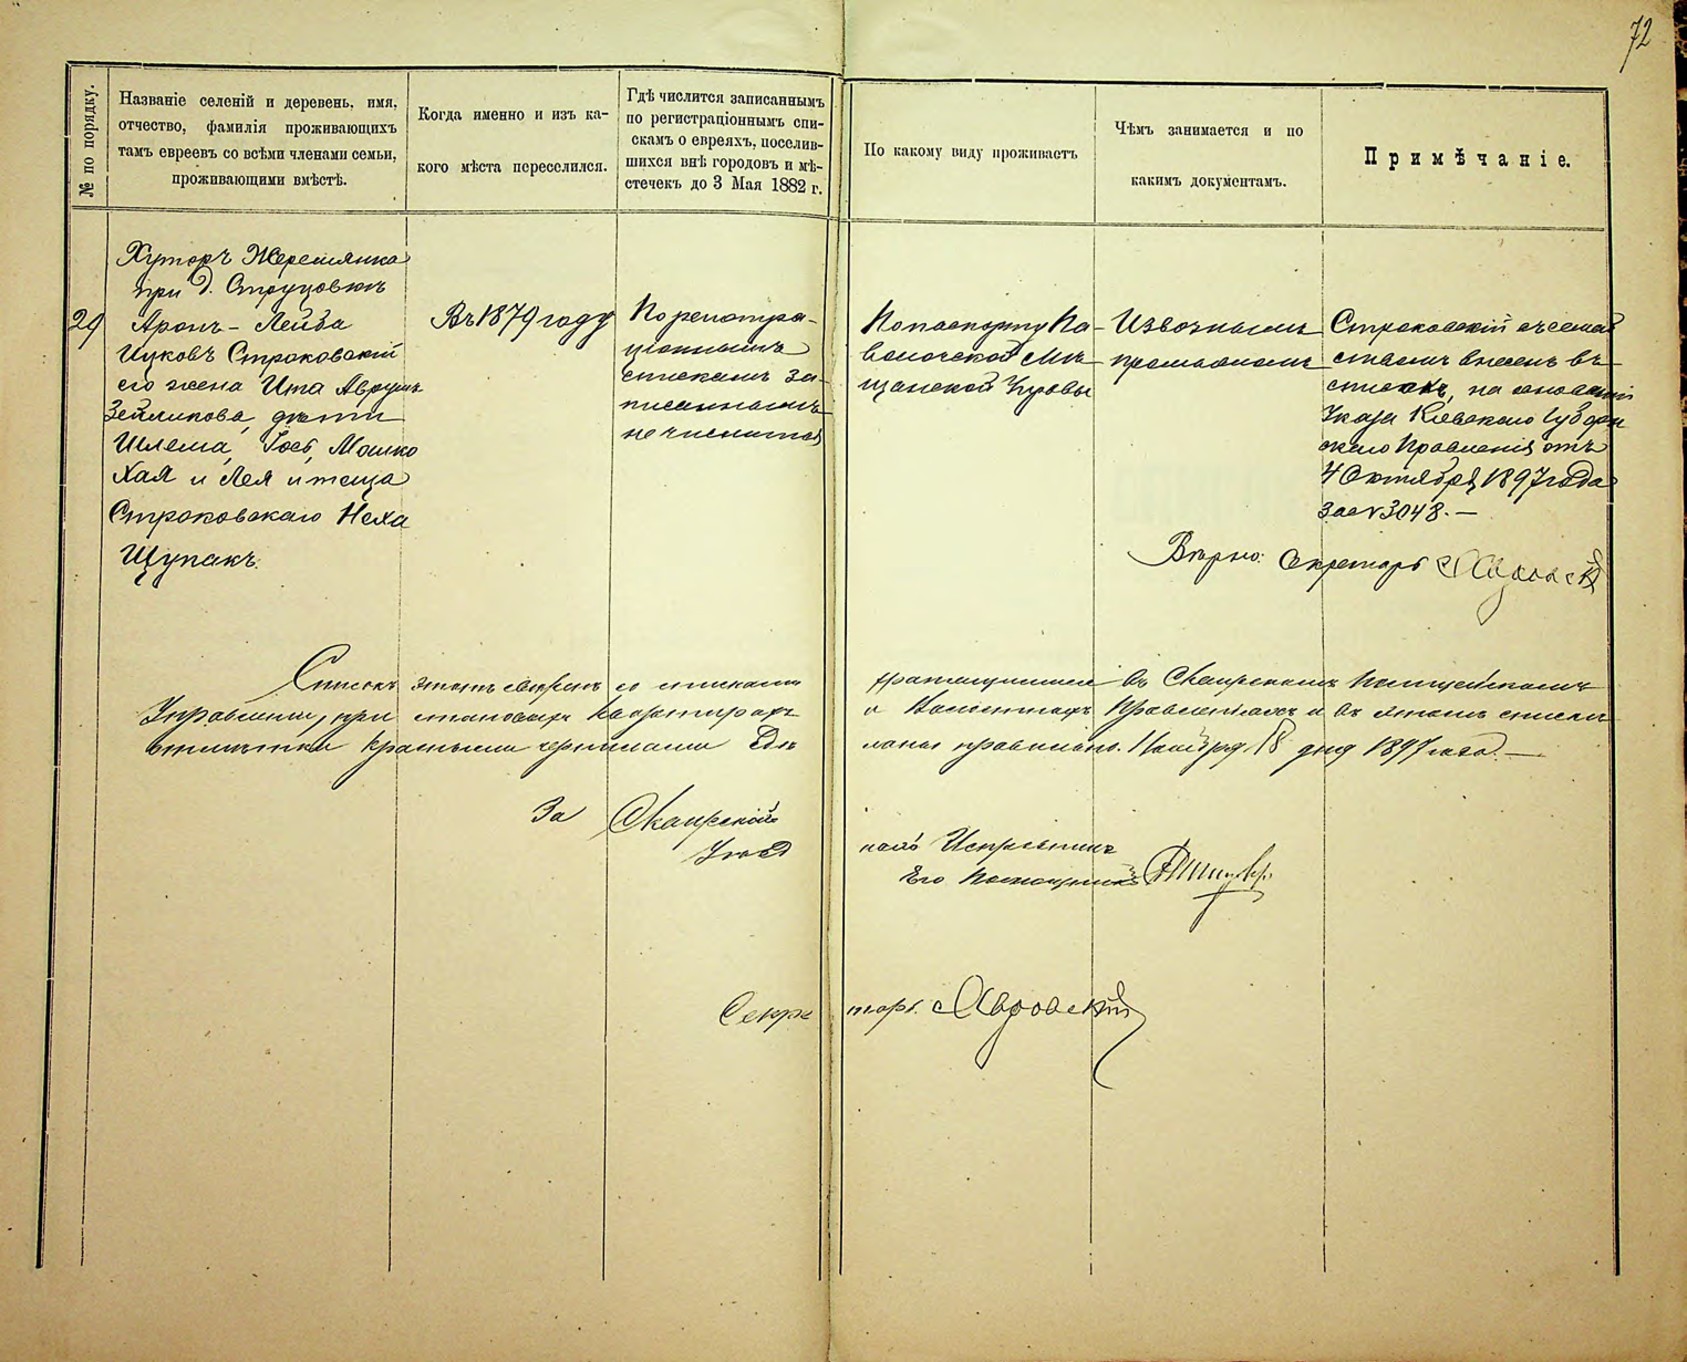 72
№ по порядку.
Названіе селеній и деревень, имя,
отчество, фамилія проживающихъ
тамъ евреевъ со всѣми членами семьи,
проживающими вмѣстѣ.
Когда именно и изъ ка-
кого мѣста переселился.
Гдѣ числится записаннымъ
по регистраціоннымъ спи-
скамъ о евреяхъ, поселив-
шихся внѣ городовъ и мѣ-
стечекъ до 3 Мая 1882 г.
По какому виду проживаетъ
Чѣмъ занимается и по
какимъ документамъ.
Примѣчаніе.
Хуторъ Жерешянка
при д. Струцовкѣ
29
Аронъ-Лейба
Ицковъ Строковскій
его жена Ита Аврумъ
Зейликова, дѣти
Шлема, Іось, Мошко
Хая и Лея и теща
Строковскаго Неха
Щупакъ.
Въ 1879 году
По регистра-
ціоннымъ
спискамъ за-
писаннымъ
не числится
По паспорту Па-
волочской Мѣ-
щанской Управы
Извознымъ
промысломъ
Строковскій съ семей
ствомъ внесенъ въ
списокъ, на основаніи
Указа Кіевскаго Губерн
скаго Правленія отъ
4 Октября 1897 года
за № 3048.—
Вѣрно: Секретарь
Списокъ этотъ свѣренъ со списками
Управленіи, при становыхъ квартирахъ
отмѣтки красными чернилами сдѣ
хранящимися въ Сквирскомъ Полицейскомъ
и Волостныхъ Правленіяхъ и въ этомъ списке
ланы правильно. Ноября 18 дня 1897 года.—
За Сквирскій
Уѣзд
наго Исправника
Его Помощникъ
Секре
тарь